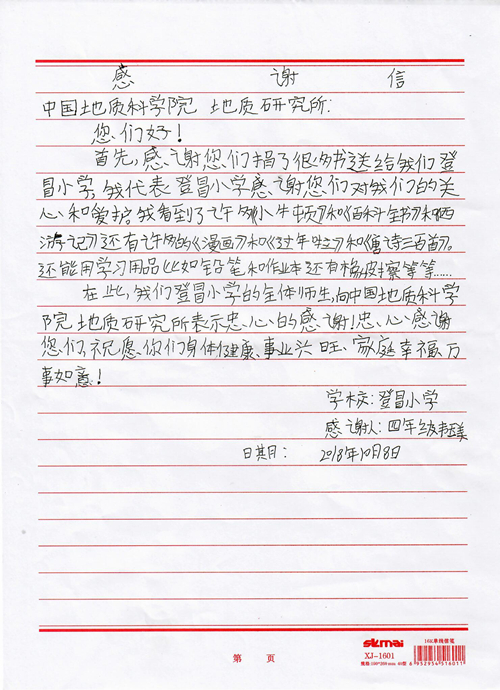 感 谢 信
中国地质科学院 地质研究所:
您们好!
首先,感谢您们捐了很多书送给我们登
冒小学,我代表登冒小学感谢您们对我们的关
心和爱护,我看到了许多《小牛顿》和《百科全书》和《西
游记》还有许多的《漫画》和《过年啦》和《唐诗三百首》。
还能用学习用品比如铅笔和作业本还有橡皮擦等等……
在此,我们登冒小学的全体师生,向中国地质科学
院地质研究所表示忠心的感谢!忠心感谢
您们,祝愿你们身体健康、事业兴旺、家庭幸福,万
事如意!
学校:登冒小学
感谢人:四年级
日期: 2018年10月8日
第 页
skmai
16K单线信笺
XJ-1601
6 932954 516011